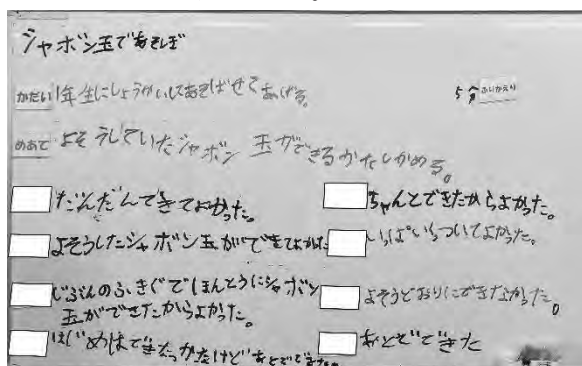 シャボン玉であそぼ
かだい 1年生にしょうかいしてあそばせてあげる。
5分 ふりかえり
めあて よそうしていたシャボン玉ができるかたしかめる。
だんだんできてよかった。
よそうしたシャボン玉ができてよかった
じぶんのふきぐでほんとうにシャボン
玉ができたからよかった。
はじめはできなかったけどあとでできた
ちゃんとできたからよかった。
いっぱいついてよかった。
よそうどおりにできたよかった。
あとでできた